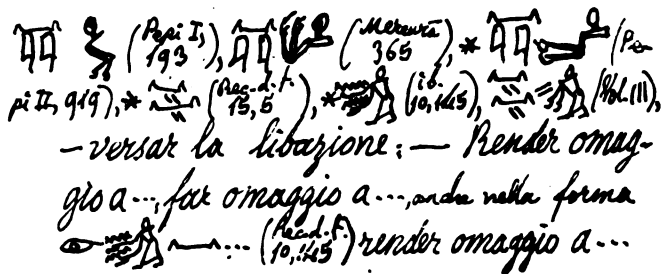 (Pepi I,
193), (Merenrâ
365), * (Pe-
pi II, 919), * (Rec. d. T.
15, 5), * (ib.
10, 145), (Vol. III),
— versar la libazione; — Render omag-
gio a ..., far omaggio a ..., anche nella forma
... (Rec. d. T.
10, 145) render omaggio a ...